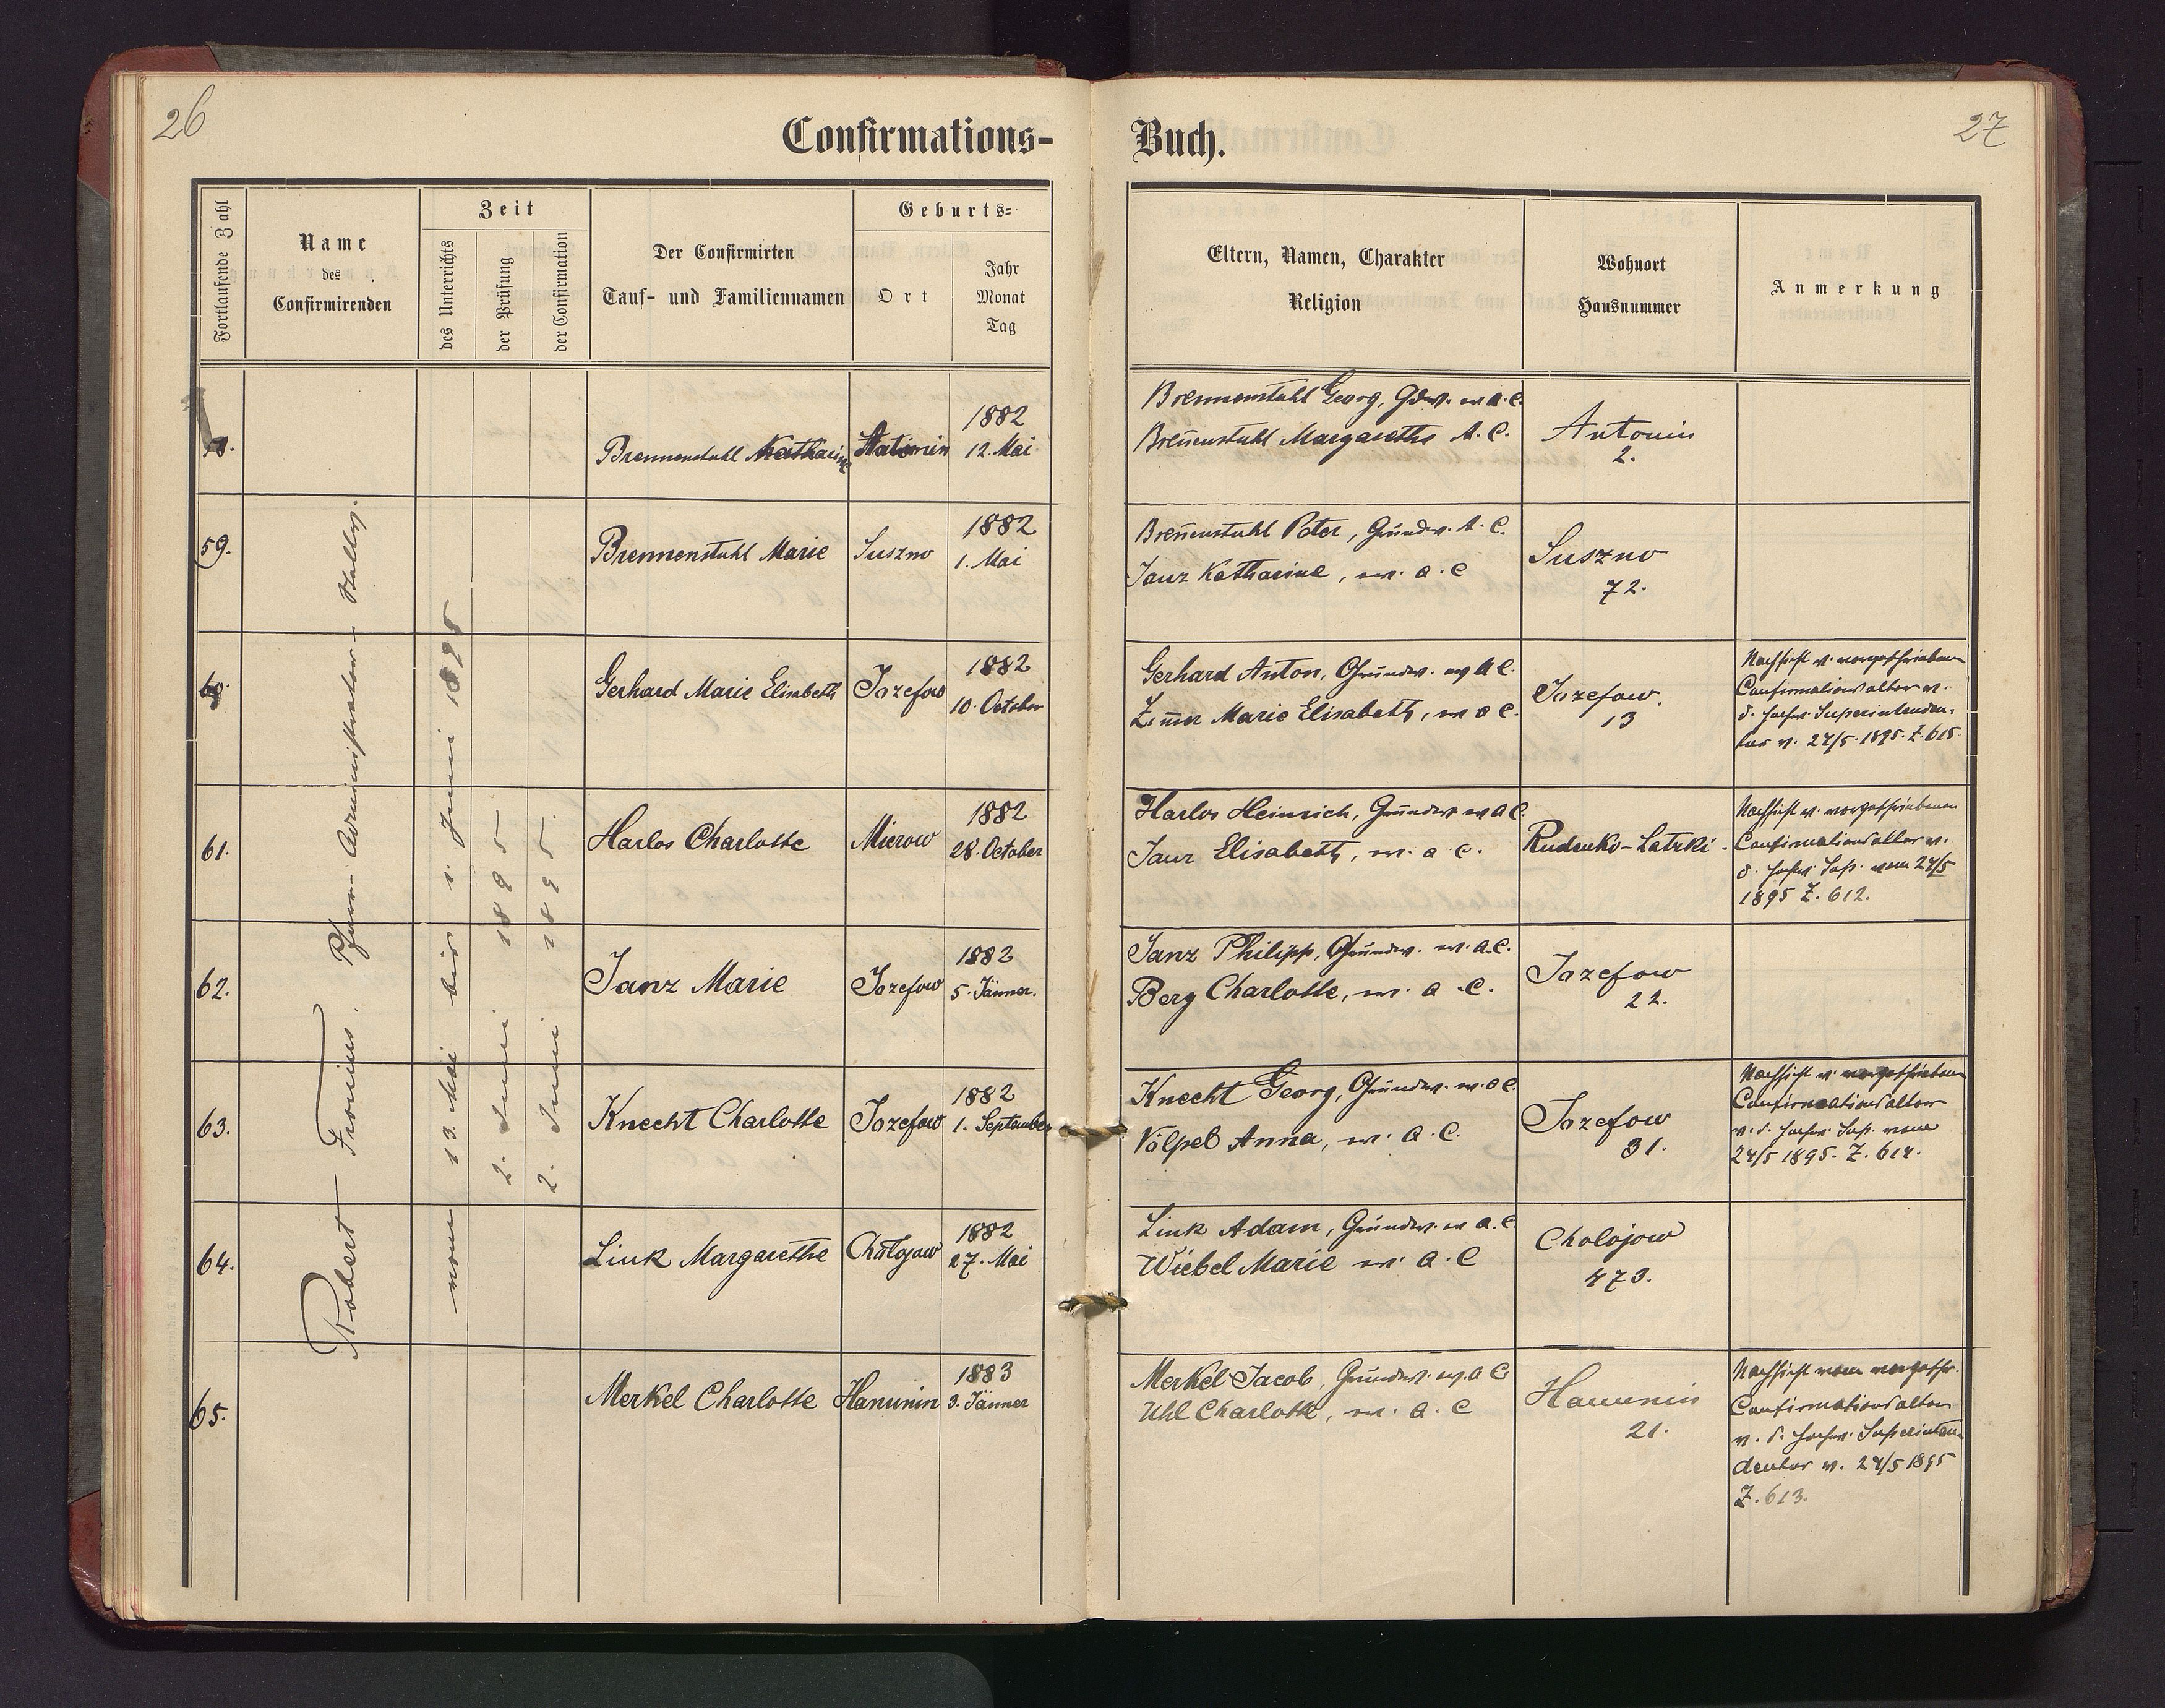 26
27
Confirmations- Buch.
Fortlaufende Zahl
Name
des
Confirmirenden
Zeit
des Unterrichts
der Prüfung
der Confirmation
Der Confirmirten
Tauf- und Familiennamen
Geburts-
Ort
Jahr
Monat
Tag
Eltern, Namen, Charakter
Religion
Wohnort
Hausnummer
Anmerkung
Robert Fronius, Pfarr-Administrator-Stellv.
vom 13. Mai bis 1. Juni 1895
2. Juni 1895
2. Juni 1895.
58.
Brennenstuhl Katharine
1882
12. Mai
Brennenstuhl Georg, Gdw. ev. A. C.
Breñenstuhl Margarethe A. C.
Antonin
2.
59.
Brennenstuhl Marie
Suszno
1882
1. Mai
Breñenstuhl Peter, Grundw. A. C.
Janz Katharine, ev. A. C
Suszno
72.
60.
Gerhard Marie Elisabeth
Jozefow
1882
10. October
Gerhard Anton, Grundw. ev A C.
Zim̄er Marie Elisabeth, ev A C.
Jozefow.
13
Nachsicht v. vorgeschriebenen
Confirmationsalter v.
d. hochw. Superintenden-
tur v. 27/5. 1895. Z. 615
61.
Harlos Charlotte
Mierow
1882
28. October
Harlos Heinrich, Grundw ev A C.
Janz Elisabeth, ev. A. C.
Rudenko-Latzki.
Nachsicht v. vorgeschriebenen
Confirmationsalter v.
d. hochw. Sup. vom 27/5
1895 Z. 612.
62.
Janz Marie
Jozefow
1882
5. Jänner.
Janz Philipp, Grundw. ev. A. C.
Berg Charlotte, ev. A. C.
Jozefow
22.
63.
Knecht Charlotte
Jozefow
1882
1. September
Knecht Georg, Grundw. ev. A C.
Völpel Anna, ev. A. C.
Jozefow
31.
Nachsicht v. vorgeschriebenen
Confirmationsalter
v. d. hochw. Sup. vom
27/5 1895. Z. 614.
64.
Link Margarethe
Cholojow
1882
27. Mai
Link Adam, Grundw. ev A. C.
Wiebel Marie ev. A. C
Cholojow
473.
65.
Merkel Charlotte
Hanunin
1883
3. Jänner
Merkel Jacob, Grundw. ev. A C
Uhl Charlotte, ev. A. C
Hanunin
21.
Nachsicht vom vorgeschr.
Confirmationsalter
v. d. hochw. Superinten-
dentur v. 27/5 1895
Z. 613.